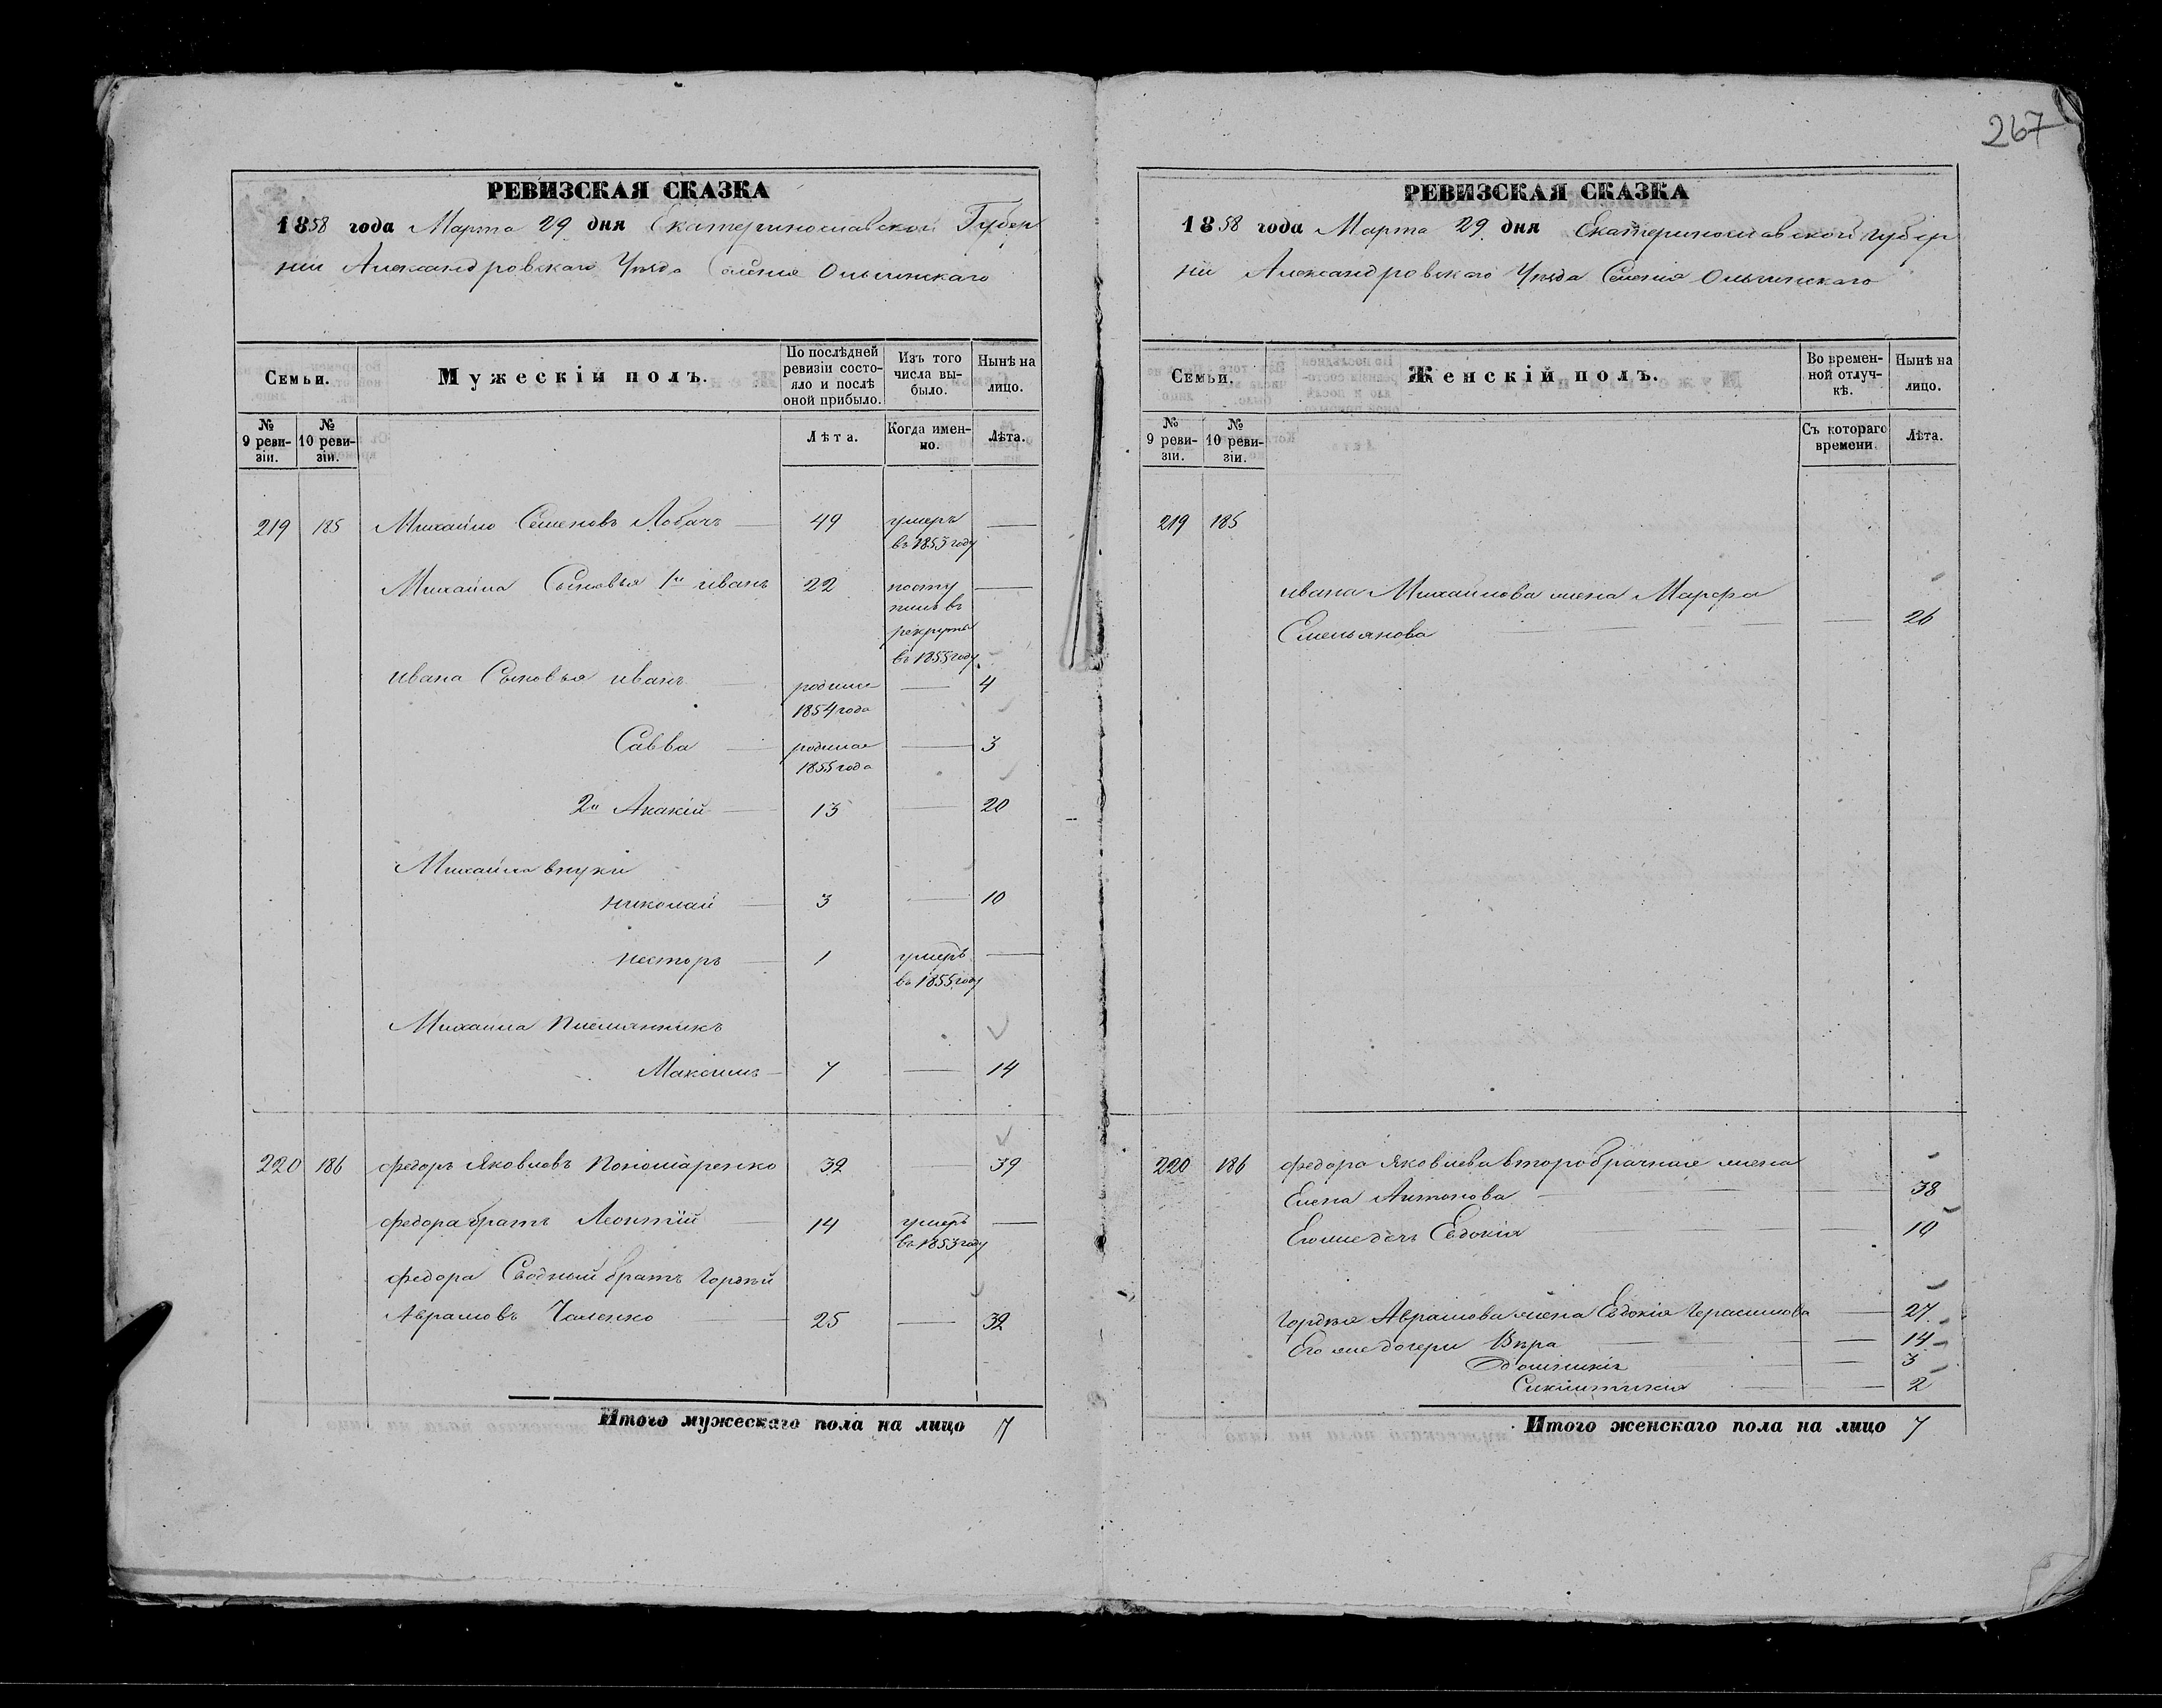 267
РЕВИЗСКАЯ СКАЗКА
1858 года Марта 29 дня Екатеринославской Губер
нии Александровскаго Уѣзда Селенія Ольгинскаго
Семьи.
Мужескій полъ.
По послѣдней ревизіи состояло и послѣ оной прибыло.
Изъ того числа выбыло.
Нынѣ на лицо.
№ 9 ревизіи.
№ 10 ревизіи.
Лѣта.
Когда именно.
Лѣта.
219 185 Михайло Семеновъ Лобачъ — 49 умеръ —
въ 1853 году
Михайла Сыновья 1й иванъ 22 посту —
пилъ въ
рекруты
въ 1855 году
ивана Сыновья иванъ — родился — 4
1854 года
Савва — родился — 3
1855 года
2й Акакій — 13 — 20
Михайла внуки
николай — 3 — 10
несторъ — 1 умеръ —
въ 1855 году
Михайла племянникъ
Максимъ — 7 — 14
220 186 федоръ Яковлевъ Пономаренко 32 39
федора братъ Леонтій — 14 умеръ —
въ 1853 году
федора Сводный братъ Гордѣй
Аврамовъ Чаленко — 25 — 32
Итого мужескаго пола на лицо 7
РЕВИЗСКАЯ СКАЗКА
1858 года Марта 29 дня Екатеринославской губер
ніи Александровскаго Уѣзда Селенія Ольгинскаго
Семьи.
Женскій полъ.
Во временной отлучкѣ.
Нынѣ на лицо.
№ 9 ревизіи.
№ 10 ревизіи.
Съ котораго времени.
Лѣта.
219 185
ивана Михайлова жена Марфа
Емельянова — — 26
220 186 федора Яковлева второбрачная жена
Елена Антонова — — 38
Его же дочь Евдокія — —
Гордѣя Аврамова жена Евдокія Герасимова — 27
Его же дочери Вѣра — — 14
— 3
— — 2
Итого женскаго пола на лицо 7